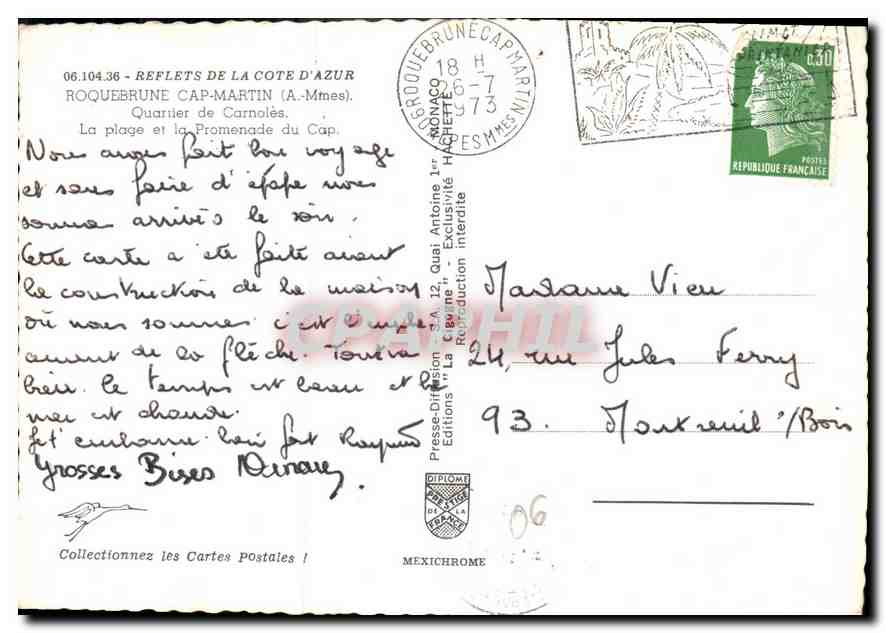 06.104.36 - REFLETS DE LA COTE D'AZUR
ROQUEBRUNE CAP-MARTIN (A.-Mmes).
Quartier de Carnolès.
La plage et la Promenade du Cap.
Nous avons fait bon voyage
et sans faire d'étape nous
sommes arrivés le soir.
Cette carte a été faite avant
la construction de la maison
où nous sommes c'est l'emple-
cement de la flèche. Tout va
bien. le temps est beau et la
mer est chaude.
Je t'embrasse bien fort
Grosses Bises
Collectionnez les Cartes Postales !
Presse-Diffusion - S.A. 12, Quai Antoine 1er, MONACO
Editions "La Cigogne" - Exclusivité HACHETTE
Reproduction interdite
DIPLOME
PRESTIGE
DE LA
FRANCE
MEXICHROME
06 ROQUEBRUNE CAP MARTIN
18 H
26-7
1973
ALPES Mmes
CLIMAT
PRINTANIER
0,30
POSTES
REPUBLIQUE FRANÇAISE
Madame Vieu
24, rue Jules Ferry
93. Montreuil s/Bois
06
CPAPHIL